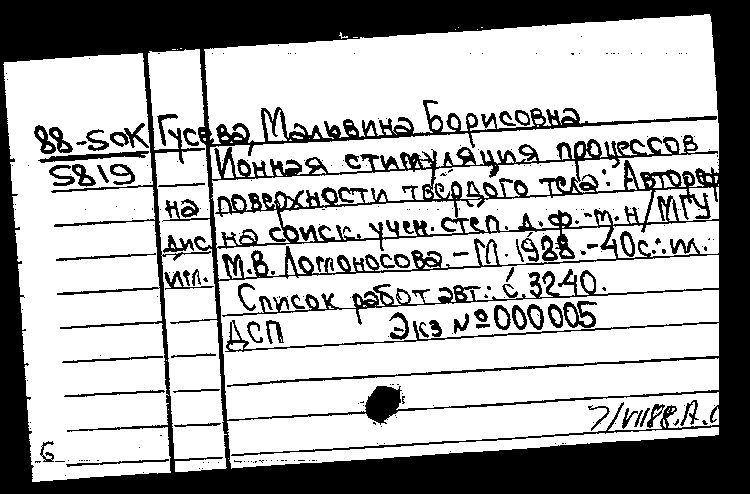 88-SOK Гусева, Мальвина Борисовна.
S819 Ионная стимуляция процессов
на поверхности твёрдого тела: Автореф
дис. на соиск. учен. степ. д.ф.-м.н/МГУ
М.В. Ломоносова.-М. 1988.-40с.:ил.
Список работ авт.: с.32-40.
ДСП Экз №000005
6